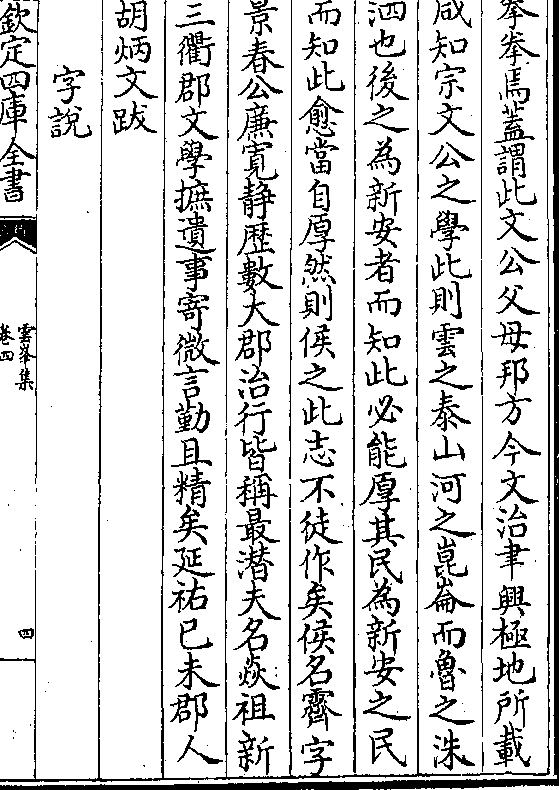 拳拳焉蓋謂此文公父母邦方今文治聿興極地所載
咸知宗文公之學此則雲之泰山河之崑崙而魯之洙
泗也後之為新安者而知此必能厚其民為新安之民
而知此愈當自厚然則侯之此志不徒作矣侯名霽字
景春公廉寛静歴數大郡治行皆稱最潜夫名焱祖新
三衢郡文學摭遺事寄微言勤且精矣延祐己未郡人
胡炳文跋
字說
欽定四庫全書
雲峯集
卷四
四